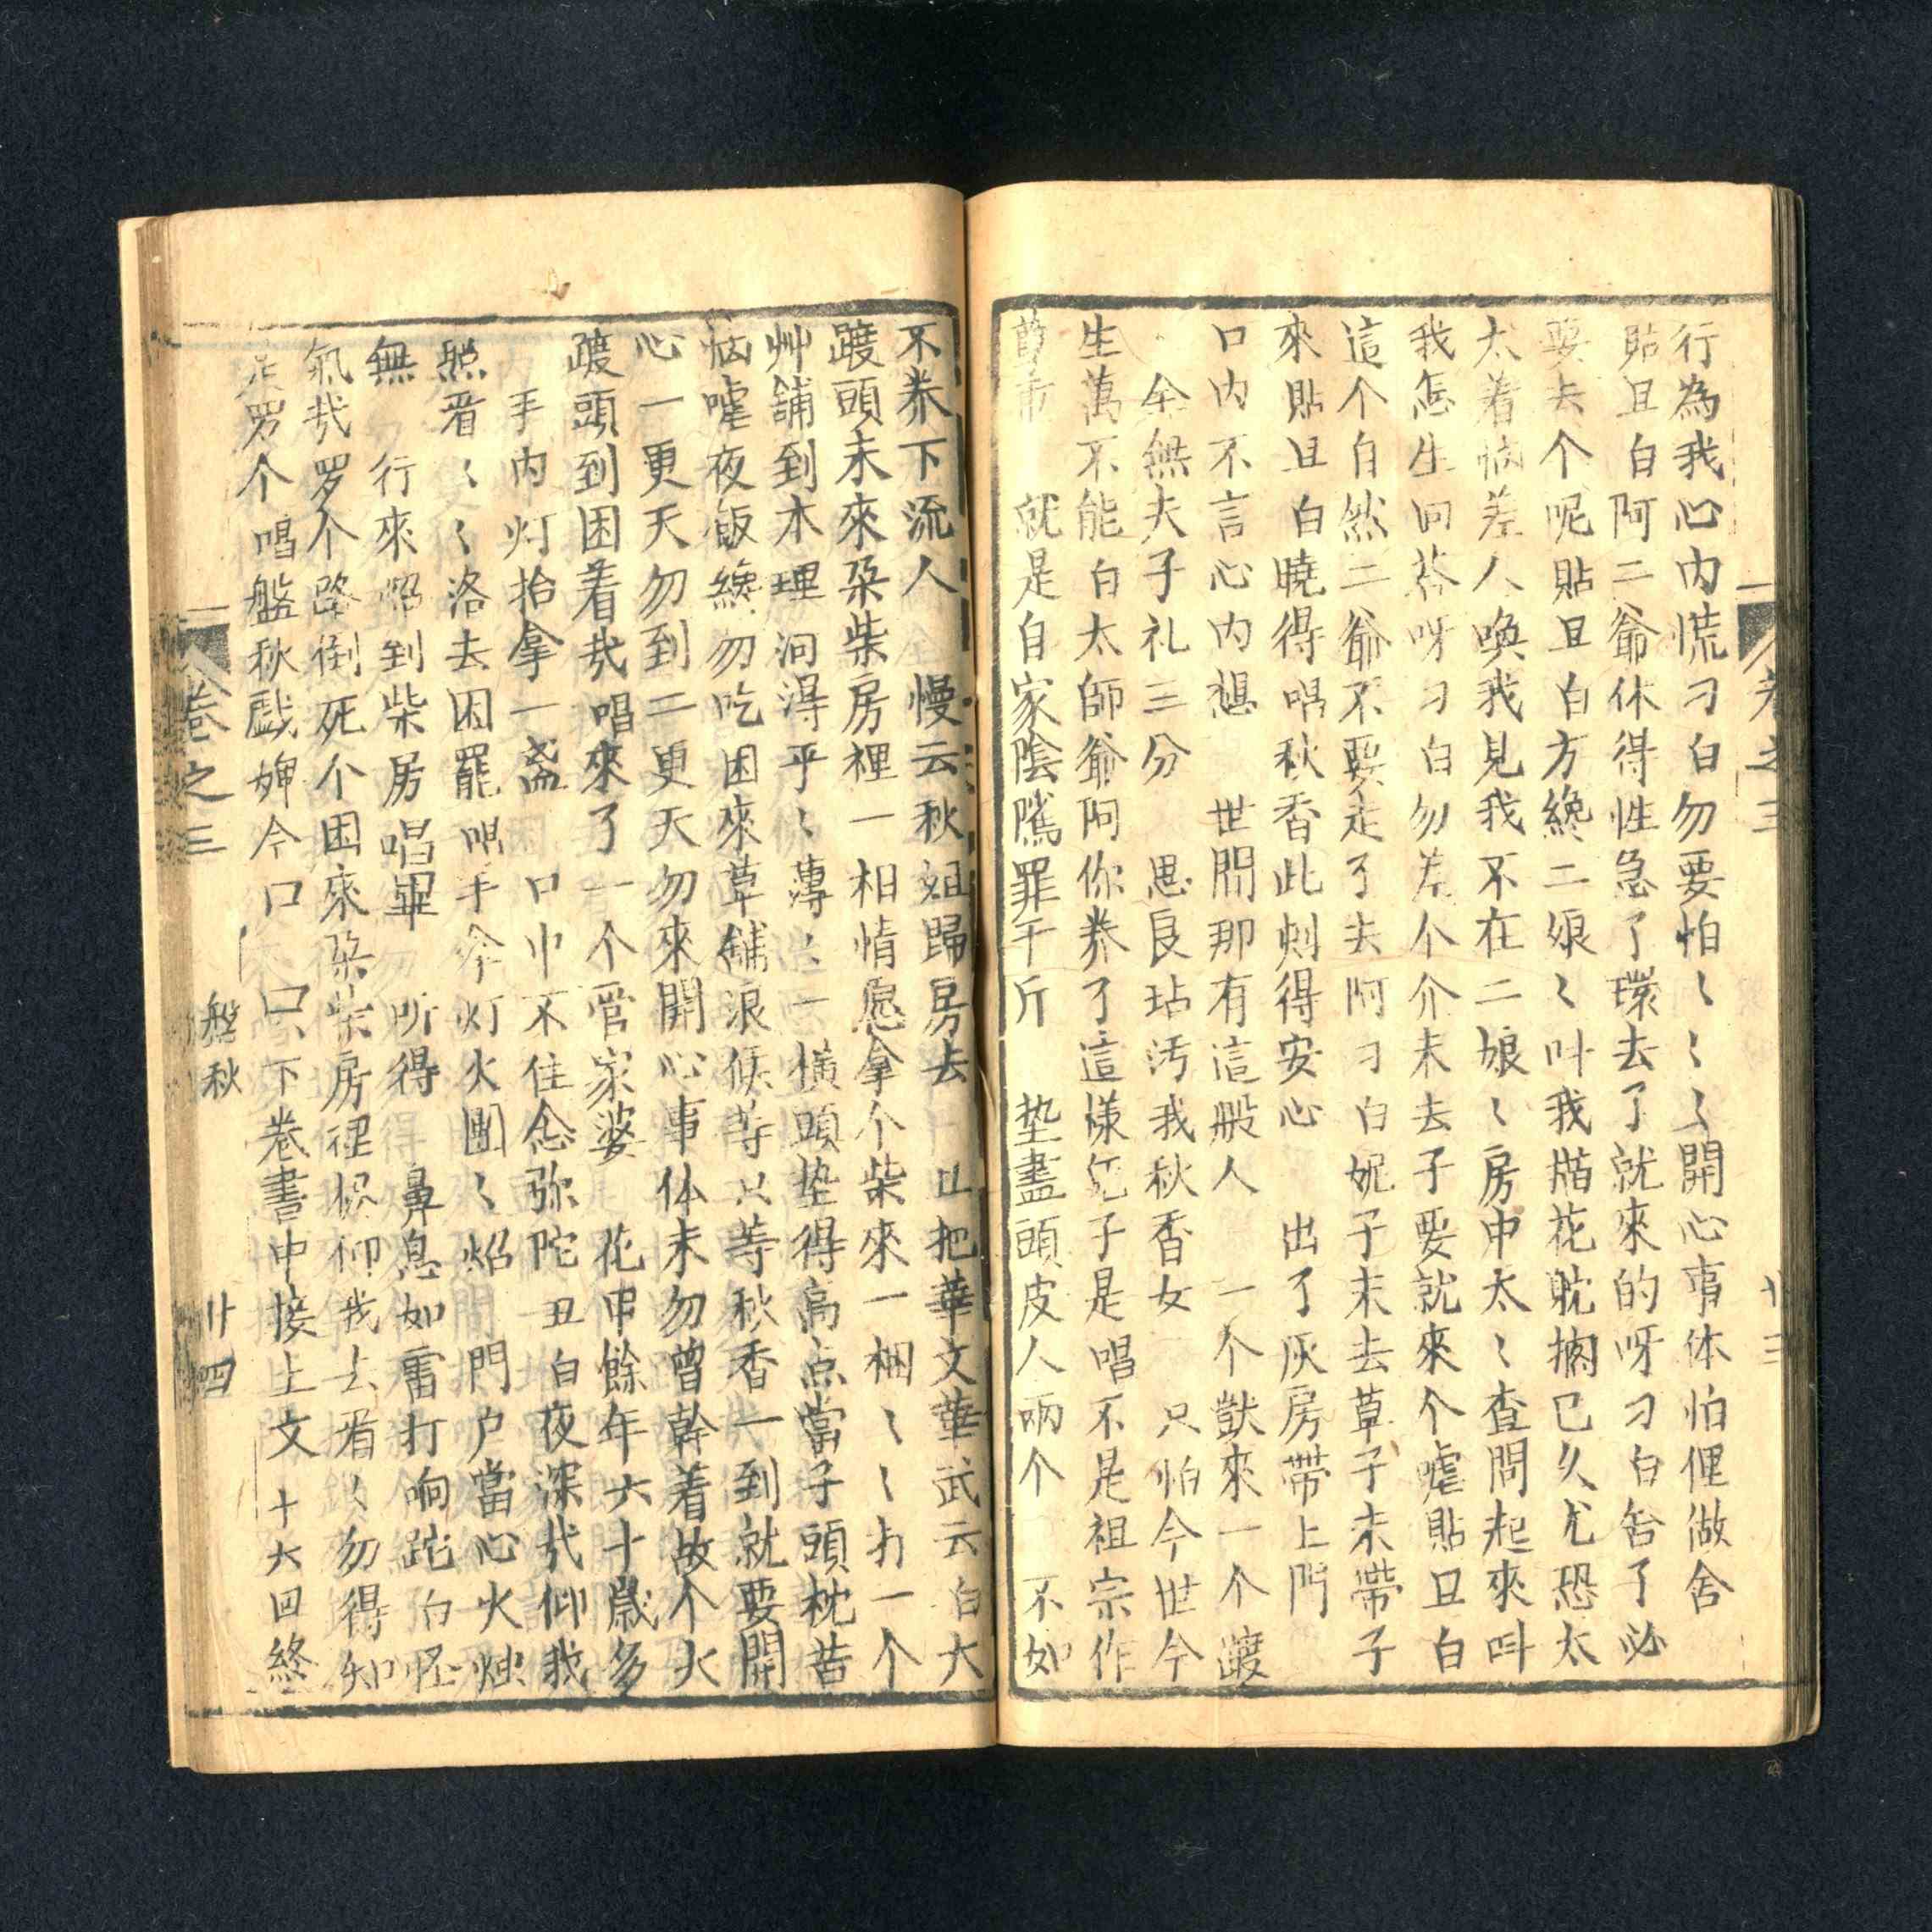 卷之三
廿三
行為我心內慌刁白勿要怕〻〻〻開心事体怕俚做舍
貼旦白阿二爺休得性急了環去了就來的呀刁白舍了必
要去个呢貼旦白方纔二娘〻叫我揩花躭擱已久尤恐太
太着惱差人喚我見我不在二娘〻房中太〻查問起來叫
我怎生回荅呀刁白勿差个介末去子要就來个嘘貼旦白
這个自然二爺不要走了夫阿刁白妮子末去草子末帶子
來貼旦白曉得唱秋香此刻得安心 出了灰房帶上門
口內不言心內想 世間那有這般人 一个獃來一个踱
全無夫子礼三分 思良玷汚我秋香女 只怕今世今
生萬不能白太師爺阿你养了這樣兒子是唱不是祖宗作
就是自家陰隲罪千斤 垫盡頭皮人兩个 不如
不养下流人 慢云秋姐歸房去 且把華文華武云白大
踱頭末來朶柴房裡一相情愿拿个柴來一梱〻〻打一个
艸鋪到木理洞淂乎〻薄〻一橫頭垫得高点當子頭枕苦
惱嘘夜飯纔勿吃困來草鋪浪候等只等秋香一到就要開
心一更天勿到二更天勿來開心事体末勿曾幹着故个大
踱頭到困着哉唱來了一个管家婆 花甲餘年六十歲多
手內灯抬拿一盞 口中不住念弥陀丑白夜深哉仰我
照看〻〻洛去困罷唱手伞灯火團〻炤 門戶當心火燭
無 行來炤到柴房唱畢 听得 鼻息如雷打响跎白怪
氣哉罗个路倒死个困來朶柴房裡根仰我去看〻勿得知
是罗个唱盤秋戲婢今口 只下卷書中接上文 十六回終
卷之三
盤秋
廿四